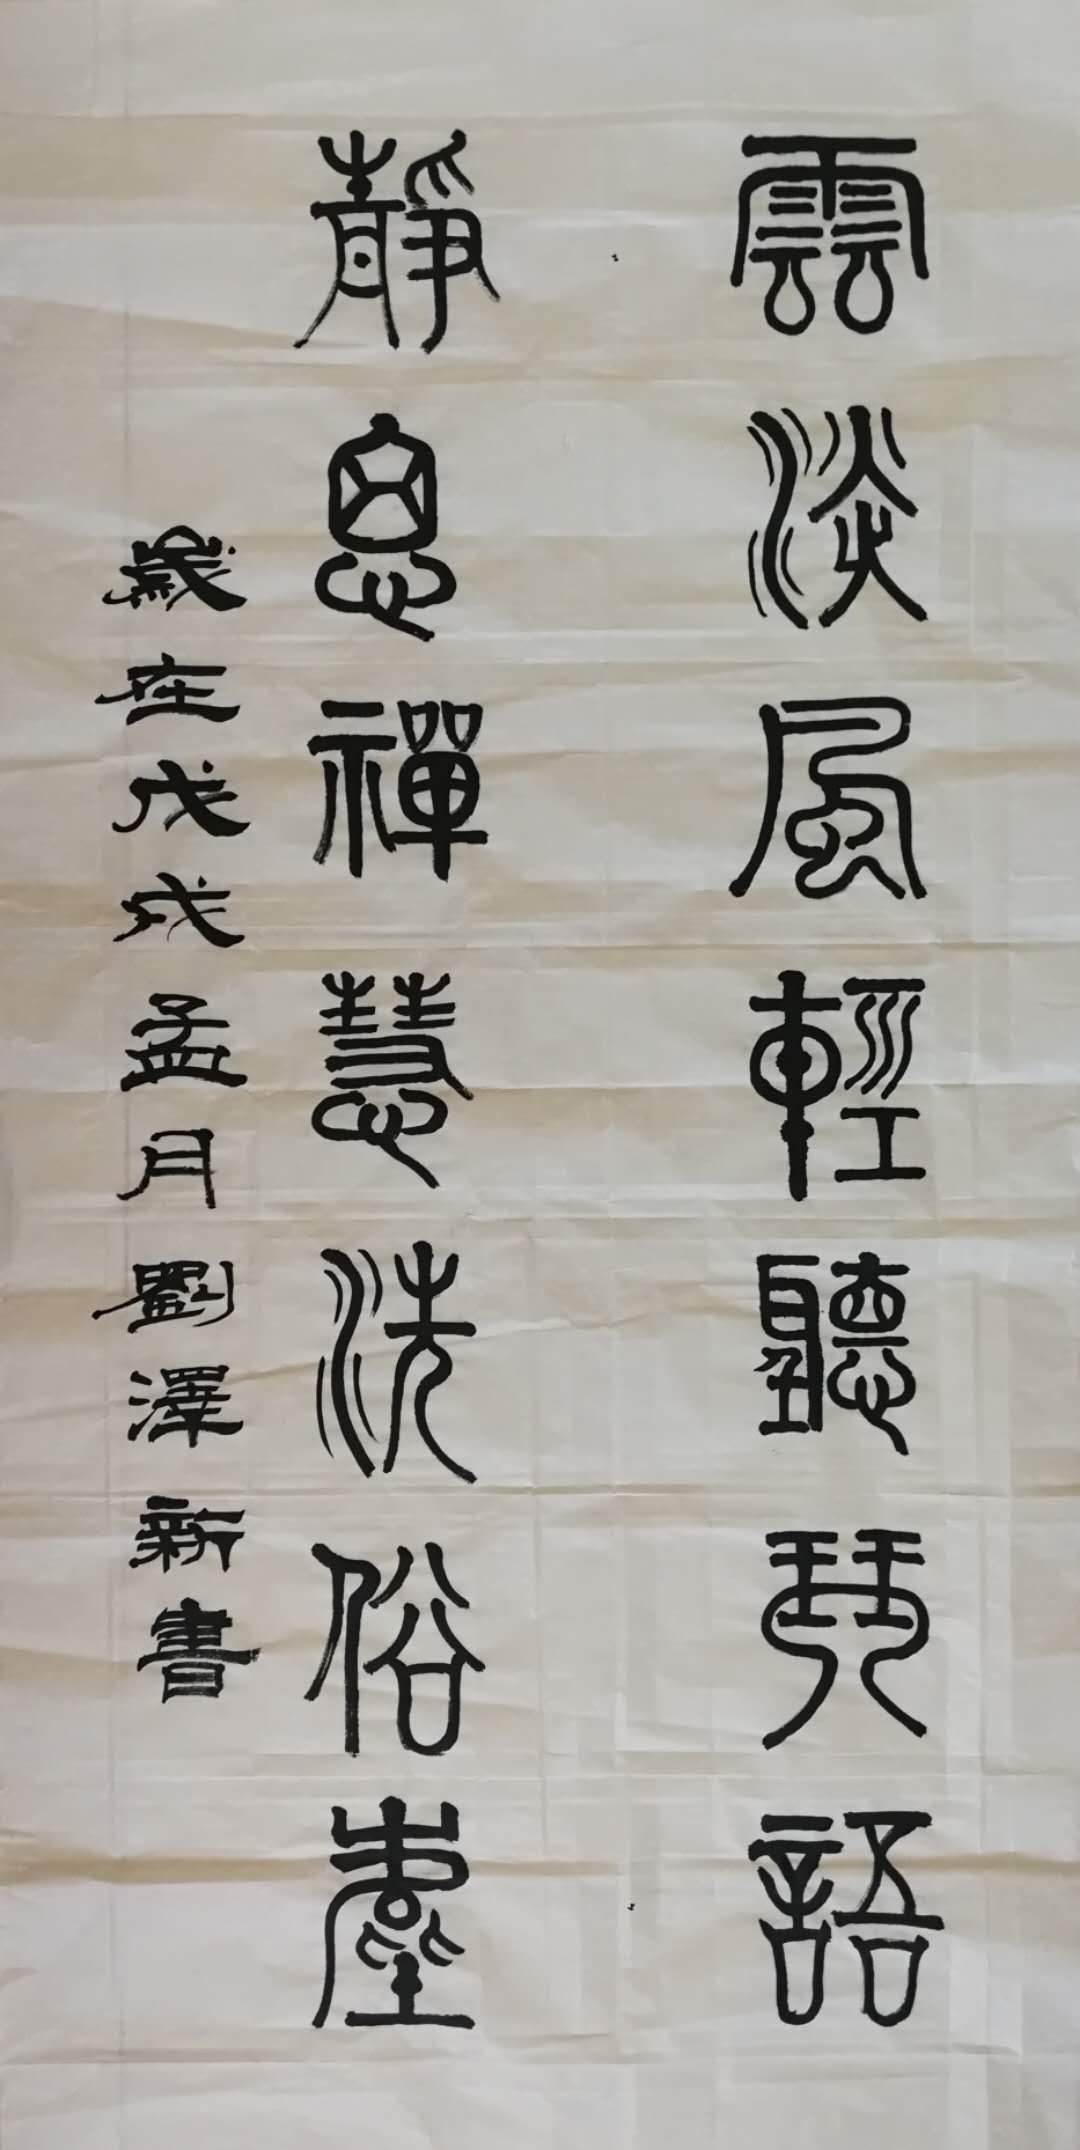 雲淡風輕聽琴語
靜思禪慧洗俗塵
歲在戊戌孟月劉澤新書